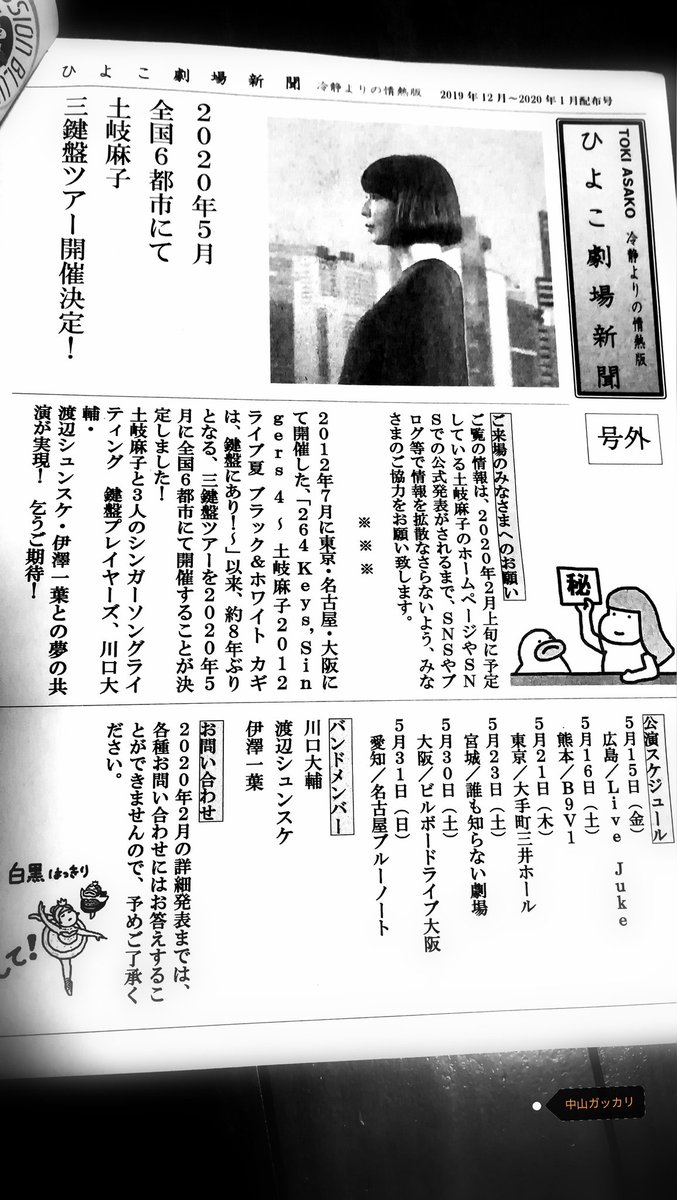 SSION BLU
ひよこ劇場新聞 冷静よりの情熱版 2019年12月～2020年1月配布号
TOKI ASAKO 冷静よりの情熱版
ひよこ劇場新聞
号外
2020年5月
全国6都市にて
土岐麻子
三鍵盤ツアー開催決定！
秘
ご来場のみなさまへのお願い
ご覧の情報は、2020年2月上旬に予定
している土岐麻子のホームページやSN
Sでの公式発表がされるまで、SNSやブ
ログ等で情報を拡散なさらないよう、みな
さまのご協力をお願い致します。
※ ※ ※
2012年7月に東京・名古屋・大阪に
て開催した、「264Keys,Sin
gers4～土岐麻子2012
ライブ夏 ブラック＆ホワイト カギ
は、鍵盤にあり！～」以来、約8年ぶり
となる、三鍵盤ツアーを2020年5
月に全国6都市にて開催することが決
定しました！
土岐麻子と3人のシンガーソングライ
ティング 鍵盤プレイヤーズ、川口大
輔・
渡辺シュンスケ・伊澤一葉との夢の共
演が実現！ 乞うご期待！
公演スケジュール
5月15日（金）
広島／Live Juke
5月16日（土）
熊本／B9V1
5月21日（木）
東京／大手町三井ホール
5月23日（土）
宮城／誰も知らない劇場
5月30日（土）
大阪／ビルボードライブ大阪
5月31日（日）
愛知／名古屋ブルーノート
バンドメンバー
川口大輔
渡辺シュンスケ
伊澤一葉
お問い合わせ
2020年2月の詳細発表までは、
各種お問い合わせにはお答えするこ
とができませんので、予めご了承く
ださい。
白黒はっきり
して！
中山ガッカリ